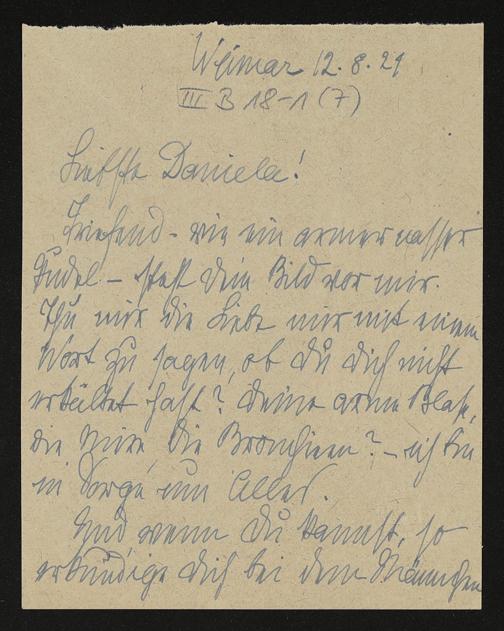 Weimar 12.8.29
III B 18-1 (7)
Liebste Daniela!
Triefend - wie ein armer nasser
Pudel - steht dein Bild vor mir.
Thu mir die Liebe mir mit einem
Wort zu sagen, ob du dich nicht
erkältet hast? Deine arme Blase,
die Niere, die Bronchien? - ich bin
in Sorge um Alles.
Und wenn du kannst, so
erkundige dich bei dem Männchen